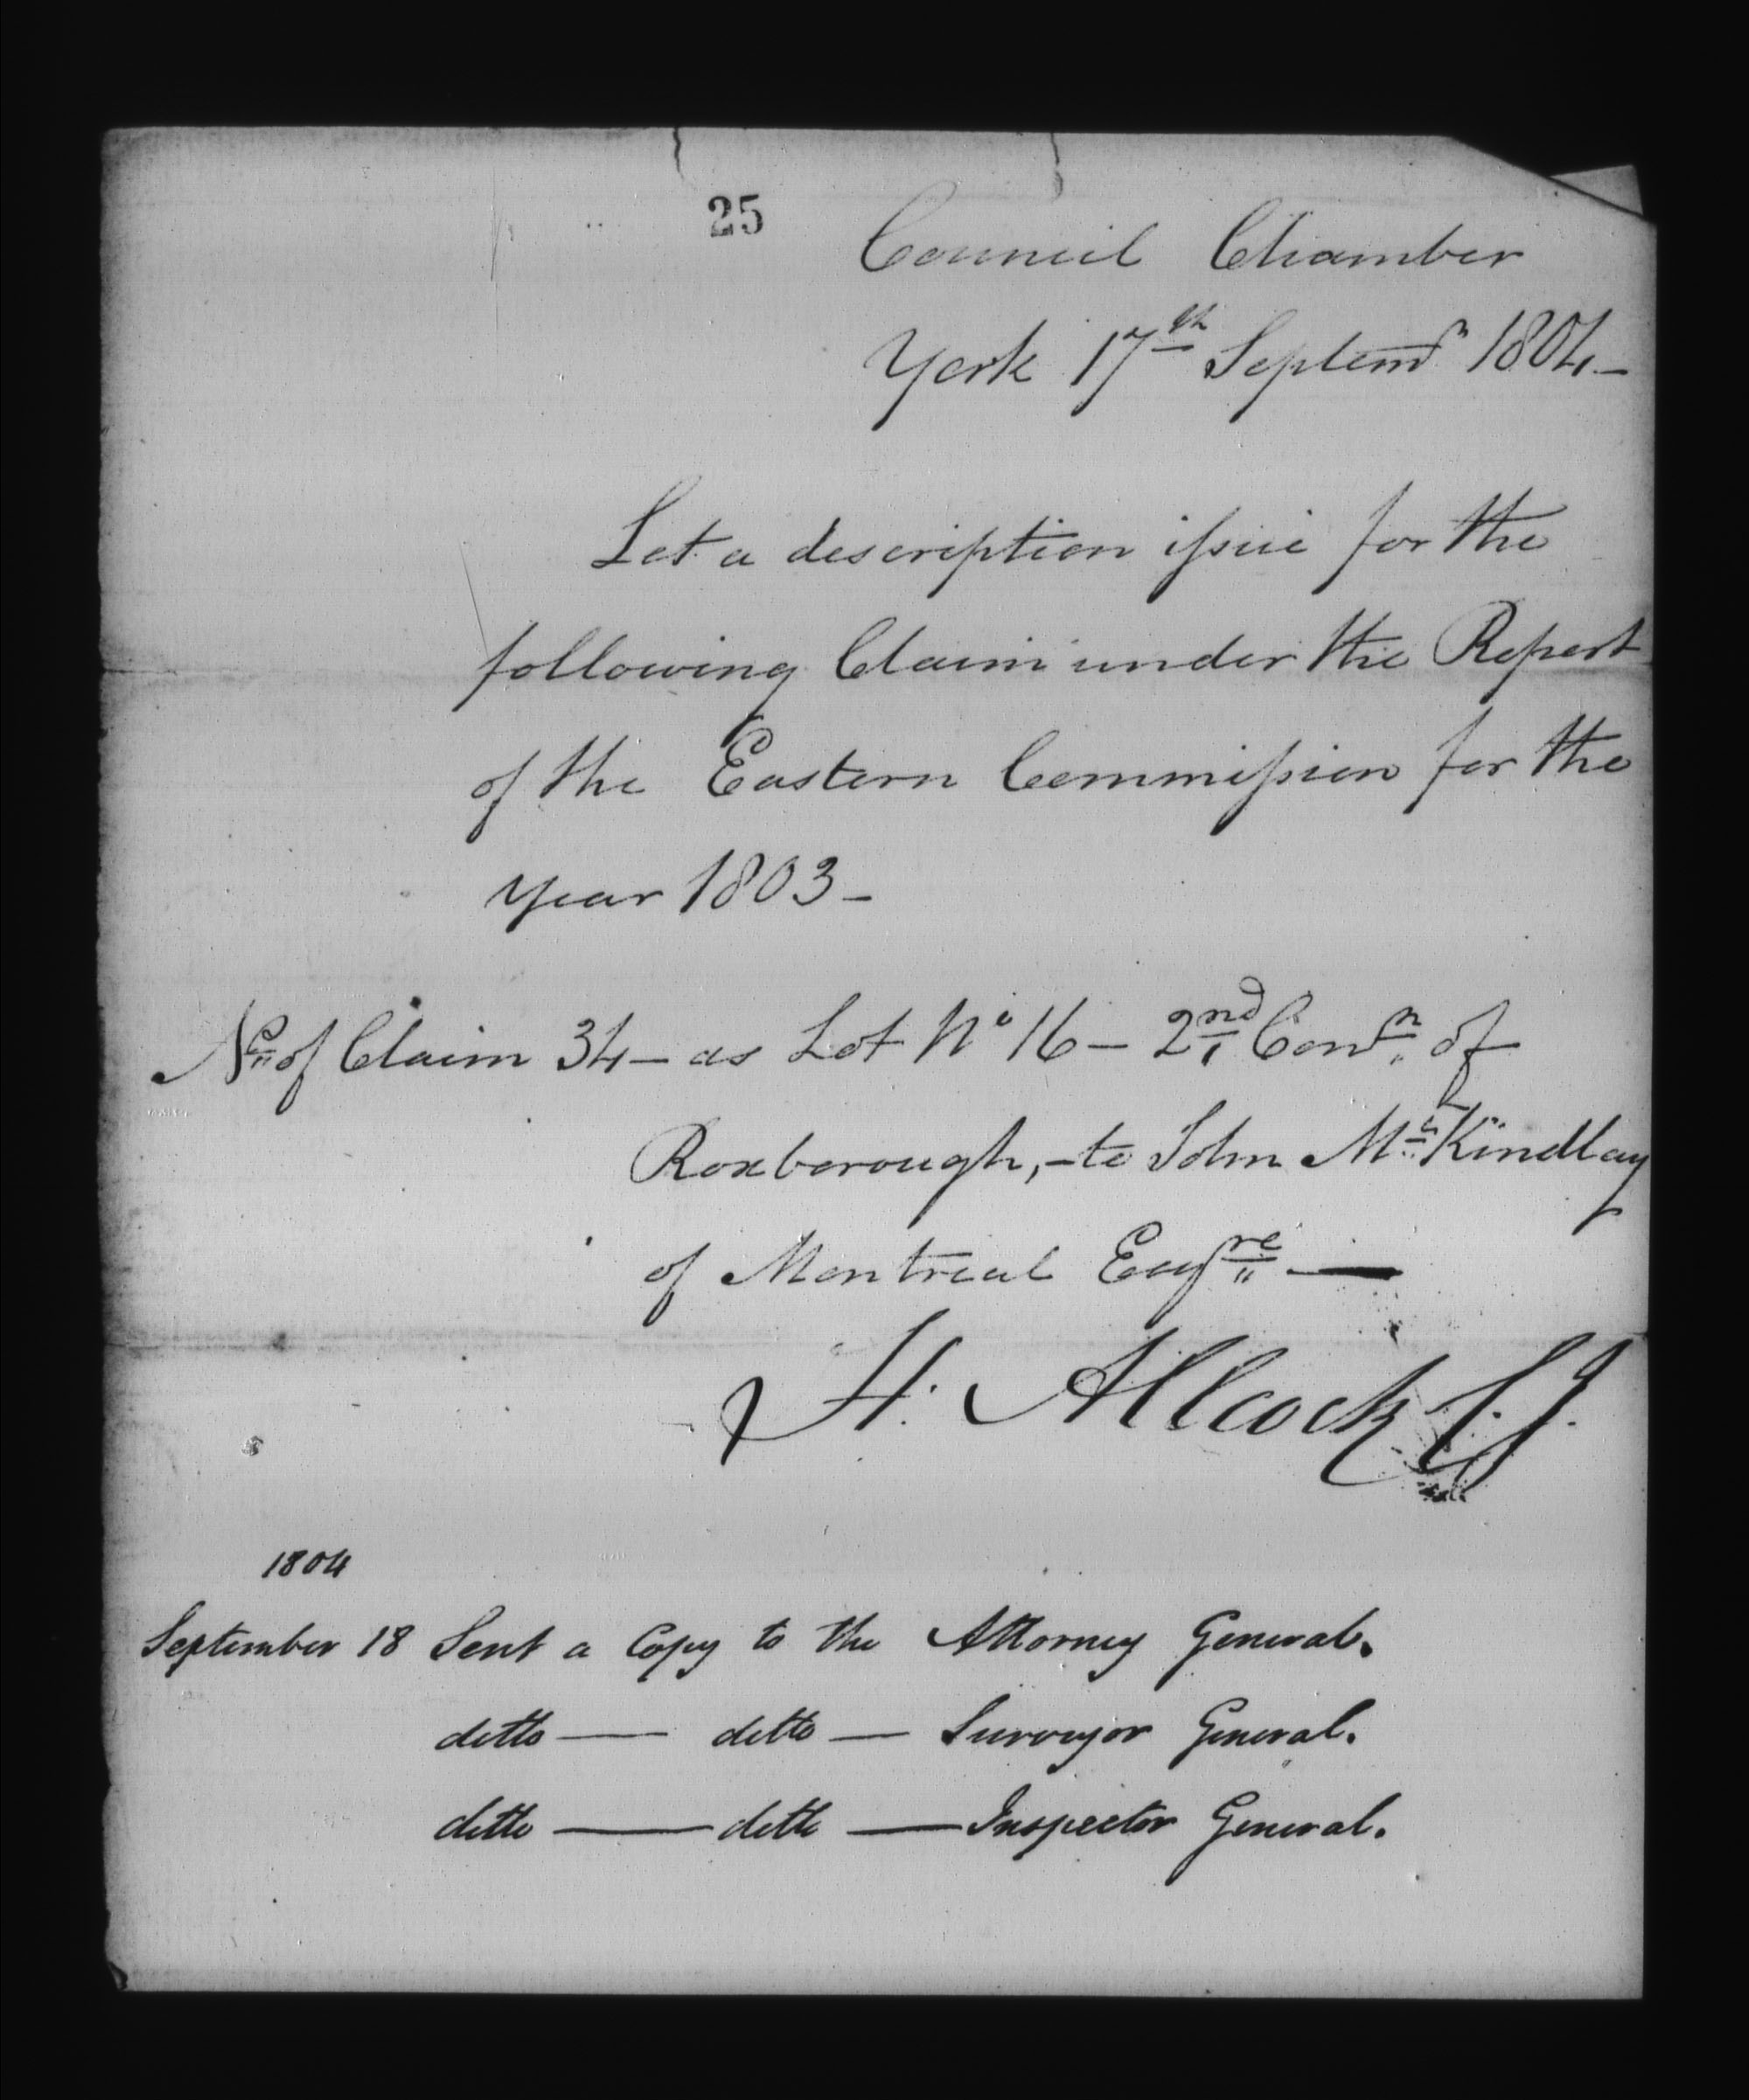 25
Council Chamber
York 17th Septemr 1804 –
Let a description issue for the
following Claim under the Report
of the Eastern Commission for the
year 1803 –
No of Claim 34 – as Lot No 16 – 2nd Conn of
Roxborough, – to John Mc Kindlay
of Montreal Esqre —
H. Allcock C.J.
1804
September 18 Sent a Copy to the Attorney General.
ditto — ditto — Surveyor General.
ditto — ditto — Inspector General.